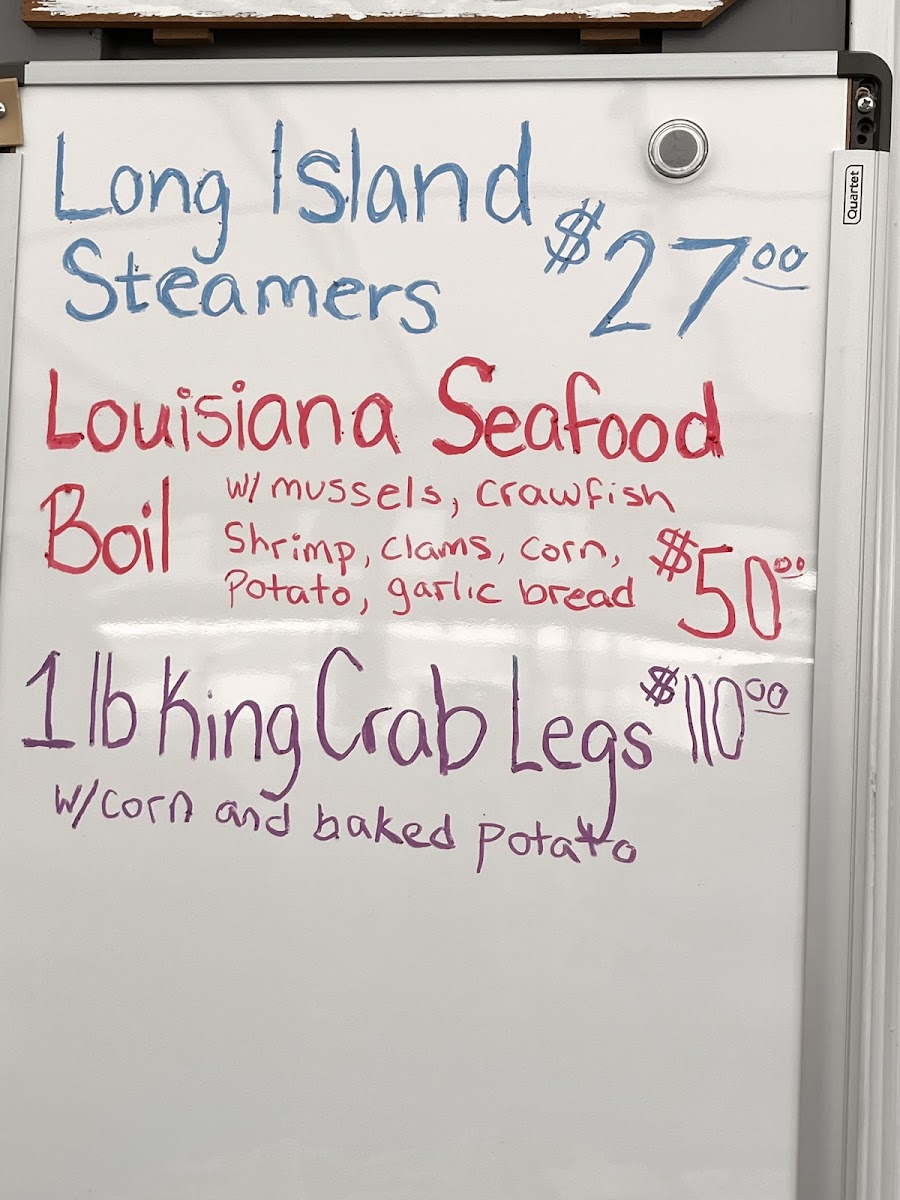 Long Island
Steamers $27.00
Louisiana Seafood
Boil w/ mussels, crawfish
Shrimp, clams, corn,
Potato, garlic bread $50.00
1 lb King Crab Legs $110.00
w/corn and baked potato
Quartet